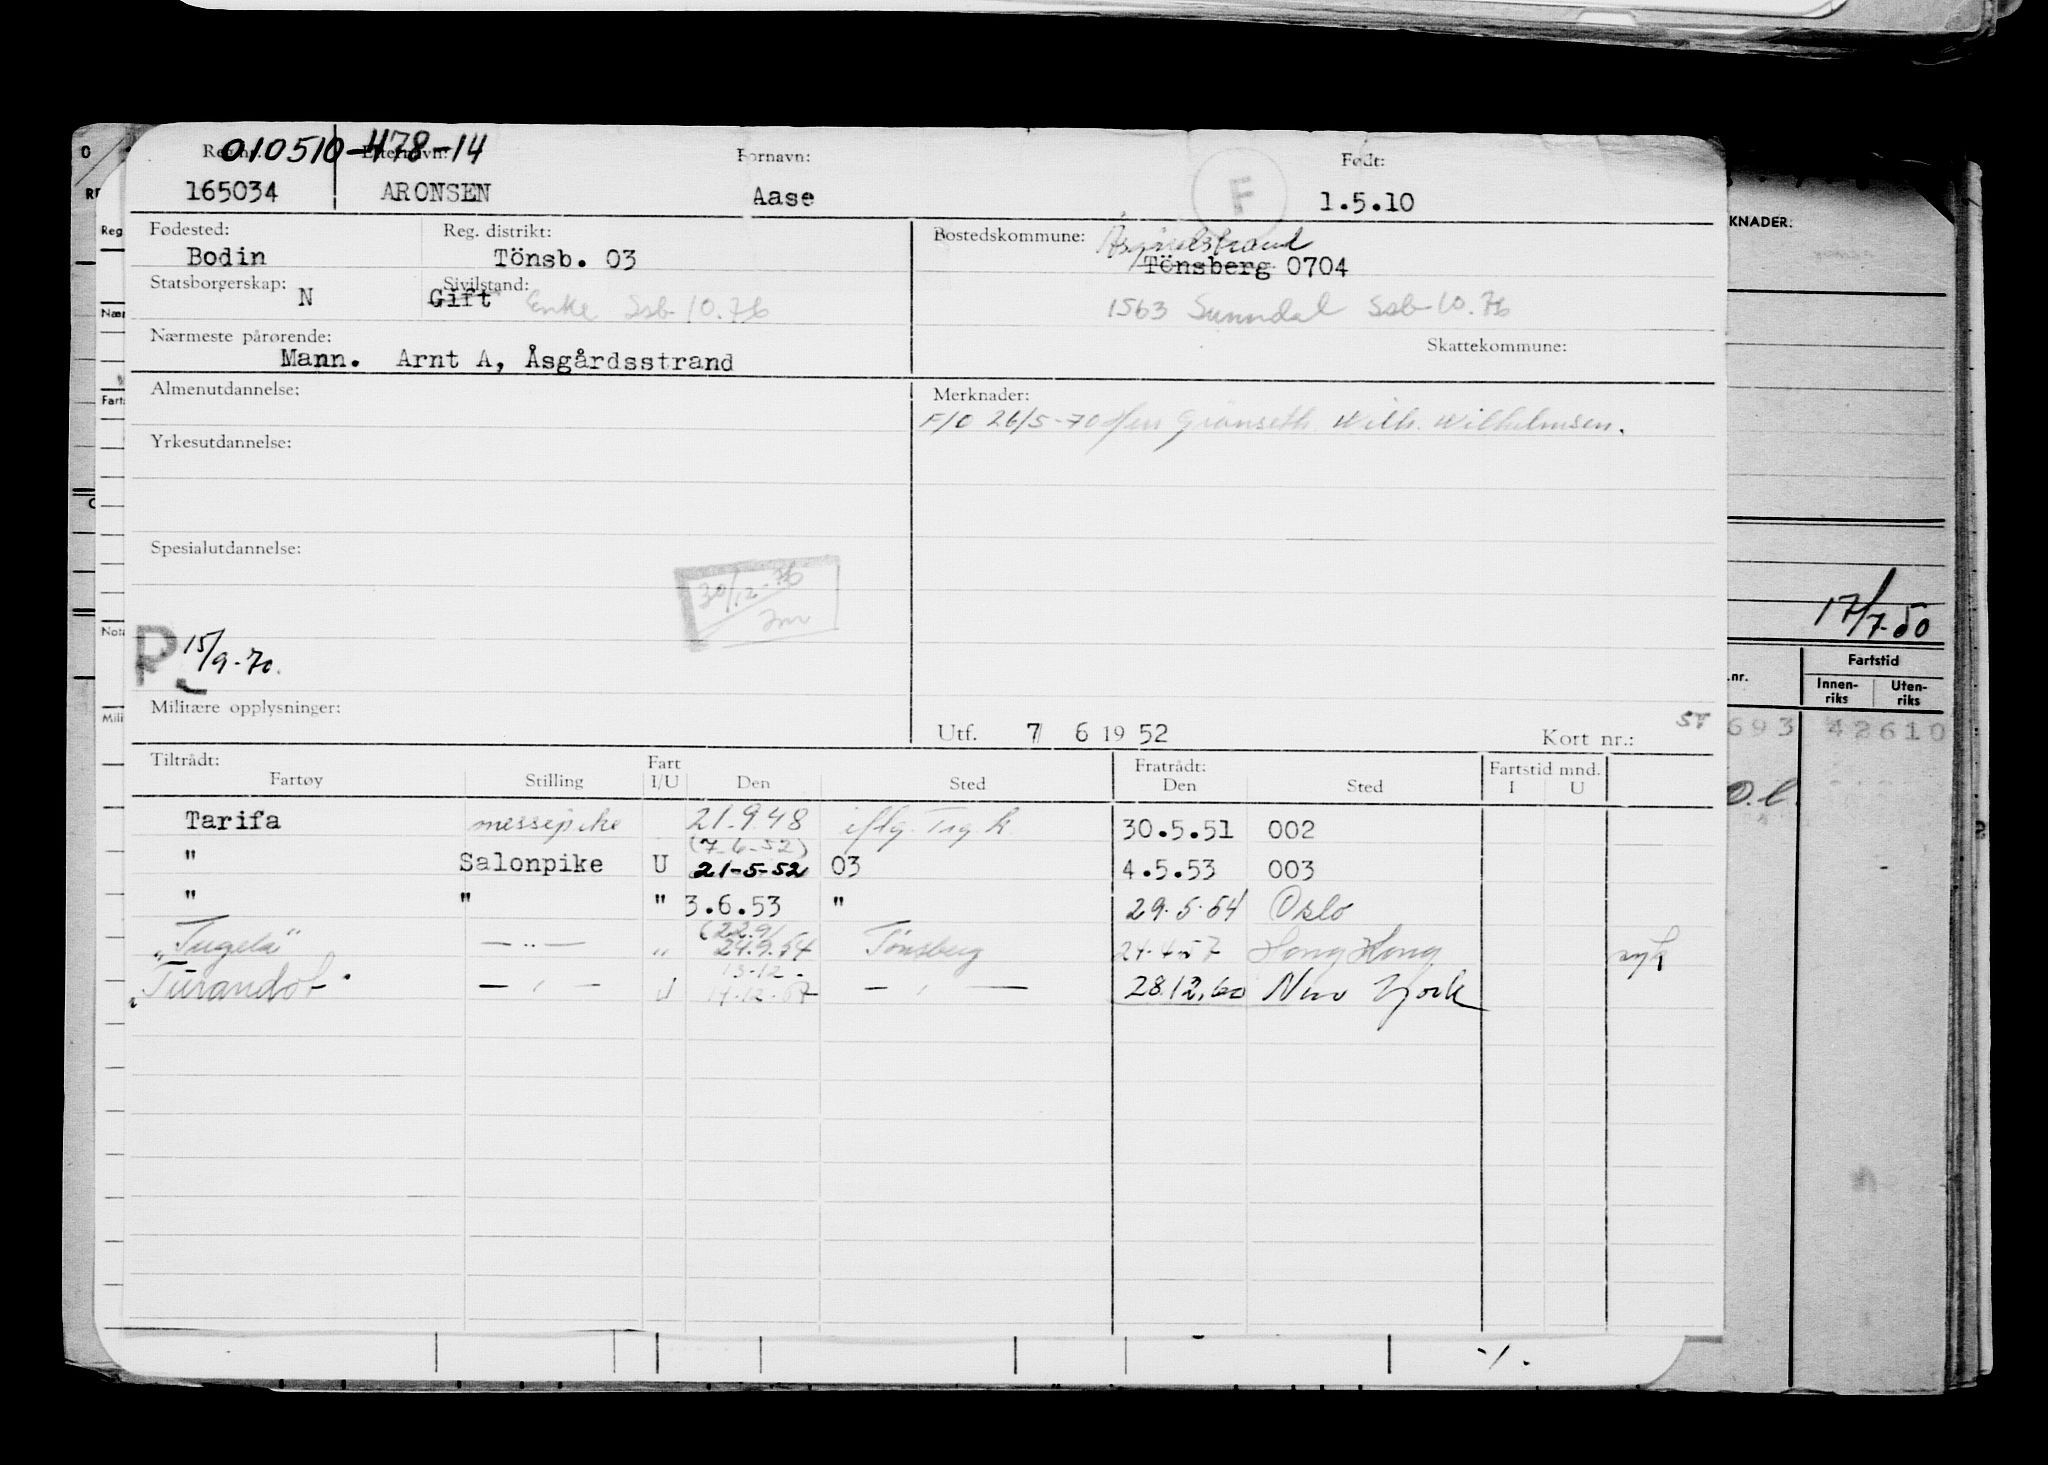 010510-478-14
Reg.nr. Etternavn: Fornavn: Født:
165034 ARONSEN Aase F 1.5.10
Fødested: Reg. distrikt: Bostedskommune: Åsgårdstrand
Bodin Tönsb. 03 Tönsberg 0704
Statsborgerskap: Sivilstand:
N Gift Enke Ssb 10.76 1563 Sunndal Ssb 10.76
Nærmeste pårørende: Skattekommune:
Mann. Arnt A, Åsgårdsstrand
Almenutdannelse: Merknader:
F/O 26/5-70 Grønseth Wilh. Wilhelmsen.
Yrkesutdannelse:
Spesialutdannelse:
30/12-76
P 15/9-70.
Militære opplysninger:
Utf. 7 6 1952 Kort nr.:
Tiltrådt: Fart Fratrådt: Fartstid mnd.
Fartøy Stilling I/U Den Sted Den Sted I U
Tarifa messepike 21.9.48 iflg. 30.5.51 002
(7-6-52)
" Salonpike U 21-5-52 03 4.5.53 003
" " " 3.6.53 " 29.5.54 Oslo
(22.9/
"Tugela" — " — " 24.9.54 Tønsberg 24.4.57 Hong Kong syk
13-12-
"Turandot" — " — U 14.12.57 — " — 28.12.60 New York
KNADER:
17/7-50
.nr. Fartstid
Innen-riks Uten-riks
693 42610
O.l.